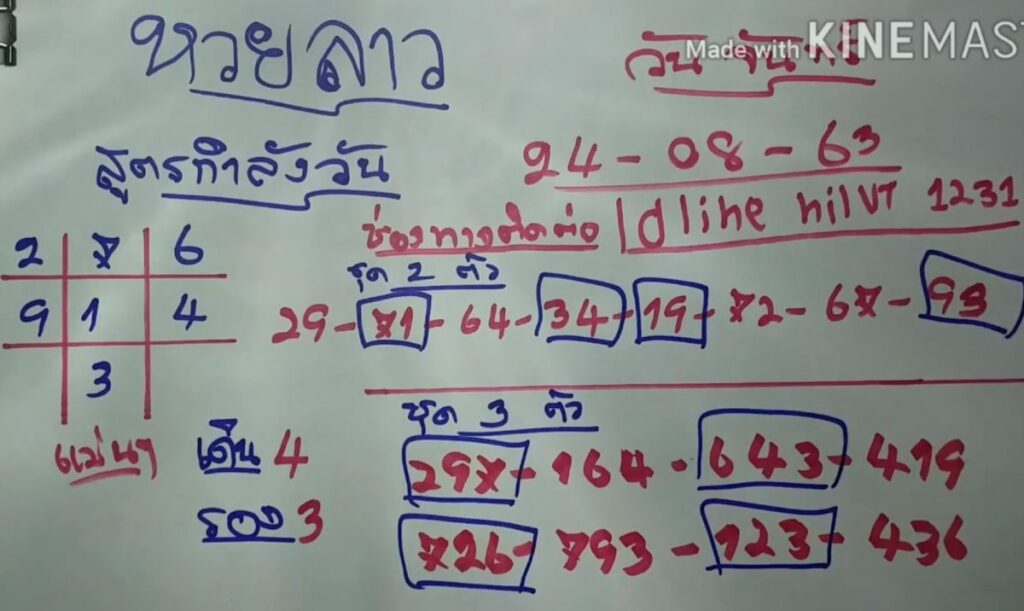 หวยลาว
วันจันทร์
Made with KINEMAS
สูตรกำลังวัน
24-08-63
ช่องทางติดต่อ Id line nilVT 1231
2 7 6
9 1 4
3
ชุด 2 ตัว
29-71-64-34-19-72-67-93
ชุด 3 ตัว
297-164-643-419
726-793-123-436
แม่นๆ
เด่น 4
รอง 3